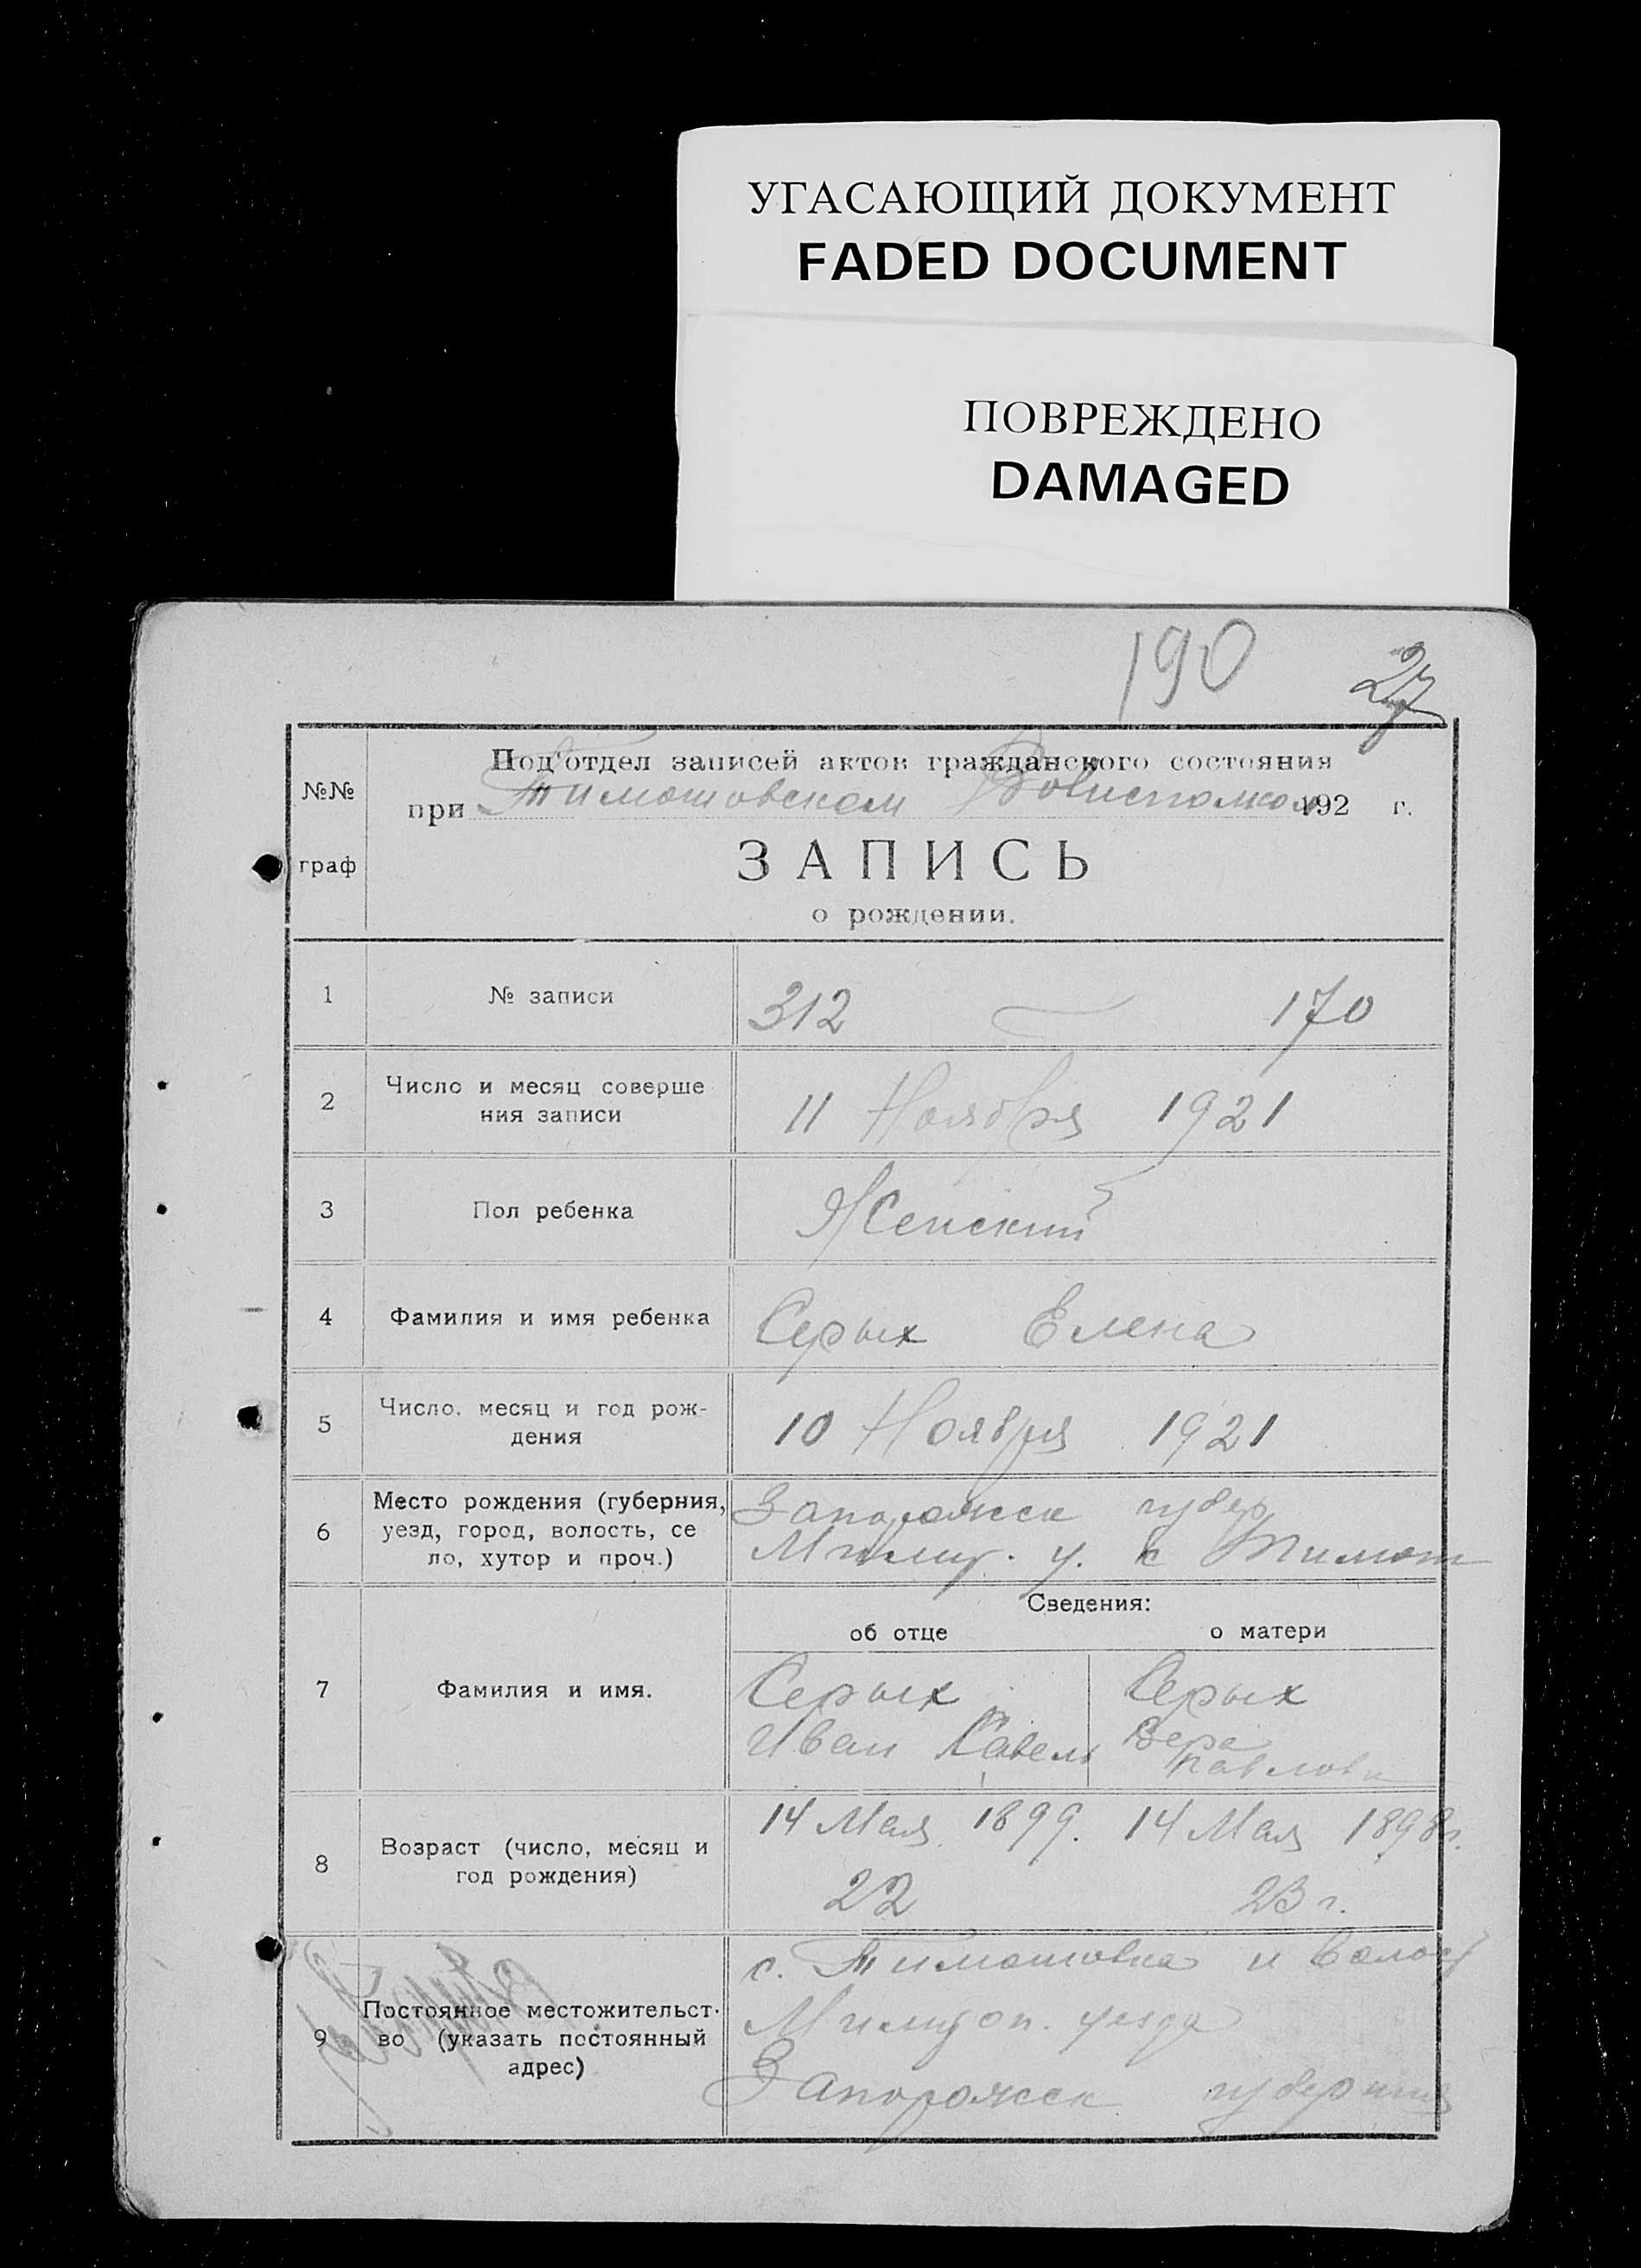 УГАСАЮЩИЙ ДОКУМЕНТ
FADED DOCUMENT
ПОВРЕЖДЕНО
DAMAGED
190 27
№№ граф
Под'отдел записей актов гражданского состояния
при Тимошовском Волисполком 192 г.
ЗАПИСЬ
о рождении.
1 № записи 312 — 170
2 Число и месяц соверше
ния записи 11 Ноября 1921
3 Пол ребенка Женский
4 Фамилия и имя ребенка Серых Елена
5 Число, месяц и год рож-
дения 10 Ноября 1921
6 Место рождения (губерния,
уезд, город, волость, се
ло, хутор и проч.)
Запорожск губер
у. с Тимош
Сведения:
об отце о матери
7 Фамилия и имя.
Серых Серых
Иван Савель Вера
Павловн
8 Возраст (число, месяц и
год рождения)
14 Мая 1899. 14 Мая 1898 г.
22 23 г.
9 Постоянное местожительст-
во (указать постоянный
адрес)
с. Тимошовка и волост
уезда
Запорожск губерния